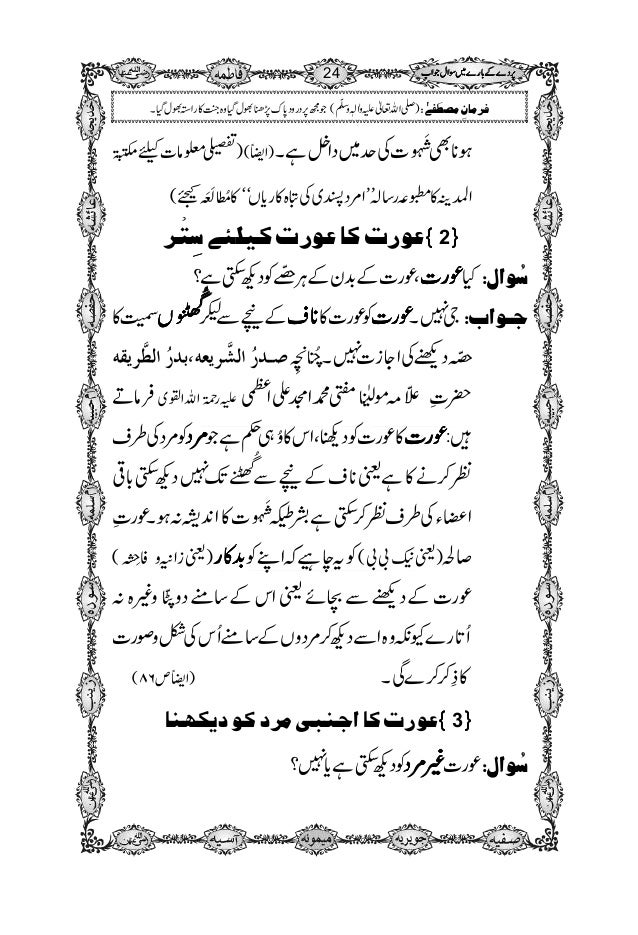 پردے کے بارے میں سوال جواب
24
فاطمہ
رضی اللہ عنہا
فرمانِ مصطفےٰ : (صلی اللہ تعالیٰ علیہ واٰلہٖ وسلم) جو مجھ پر درود پاک پڑھنا بھول گیا وہ جنت کا راستہ بھول گیا۔
ہونا بھی شَہوت کی حد میں داخل ہے۔ (ایضاً) (تفصیلی معلومات کیلئے مکتبۃ
المدینہ کا مطبوعہ رسالہ ’’امرد پسندی کی تباہ کاریاں‘‘ کا مُطالَعَہ کیجئے)
{2} عورت کا عورت کیلئے سِتْر
سُوال: کیا عورت، عورت کے بدن کے ہر حصّے کو دیکھ سکتی ہے؟
جواب: جی نہیں۔ عورت کو عورت کا ناف کے نیچے سے لیکر گھٹنوں سمیت کا
حصّہ دیکھنے کی اجازت نہیں۔ چُنانچِہ صدرُ الشَّریعہ، بدرُ الطَّریقہ
حضرتِ علّامہ مولیٰنا مفتی محمد امجد علی اعظمی علیہ رحمۃ اللہ القوی فرماتے
ہیں: عورت کا عورت کو دیکھنا، اس کا وُہی حکم ہے جو مرد کو مرد کی طرف
نظر کرنے کا ہے یعنی ناف کے نیچے سے گُھٹنے تک نہیں دیکھ سکتی باقی
اعضاء کی طرف نظر کر سکتی ہے بشرطیکہ شَہوت کا اندیشہ نہ ہو۔ عورتِ
صالحہ (یعنی نیک بی بی) کو یہ چاہیے کہ اپنے کو بدکار (یعنی زانیہ و فاحِشہ)
عورت کے دیکھنے سے بچائے یعنی اس کے سامنے دوپٹّا وغیرہ نہ
اُتارے کیونکہ وہ اسے دیکھ کر مردوں کے سامنے اُس کی شکل و صورت
کا ذِکر کرے گی۔ (ایضاً ص ۸۶)
{3} عورت کا اجنبی مرد کو دیکھنا
سُوال: عورت غیر مرد کو دیکھ سکتی ہے یا نہیں؟
خدیجہ
عائشہ
حفصہ
ام حبیبہ
ام سلمہ
سودہ
زینب
رضی اللہ عنہن
صفیہ
جویریہ
میمونہ
آسیہ
رضی اللہ عنہن